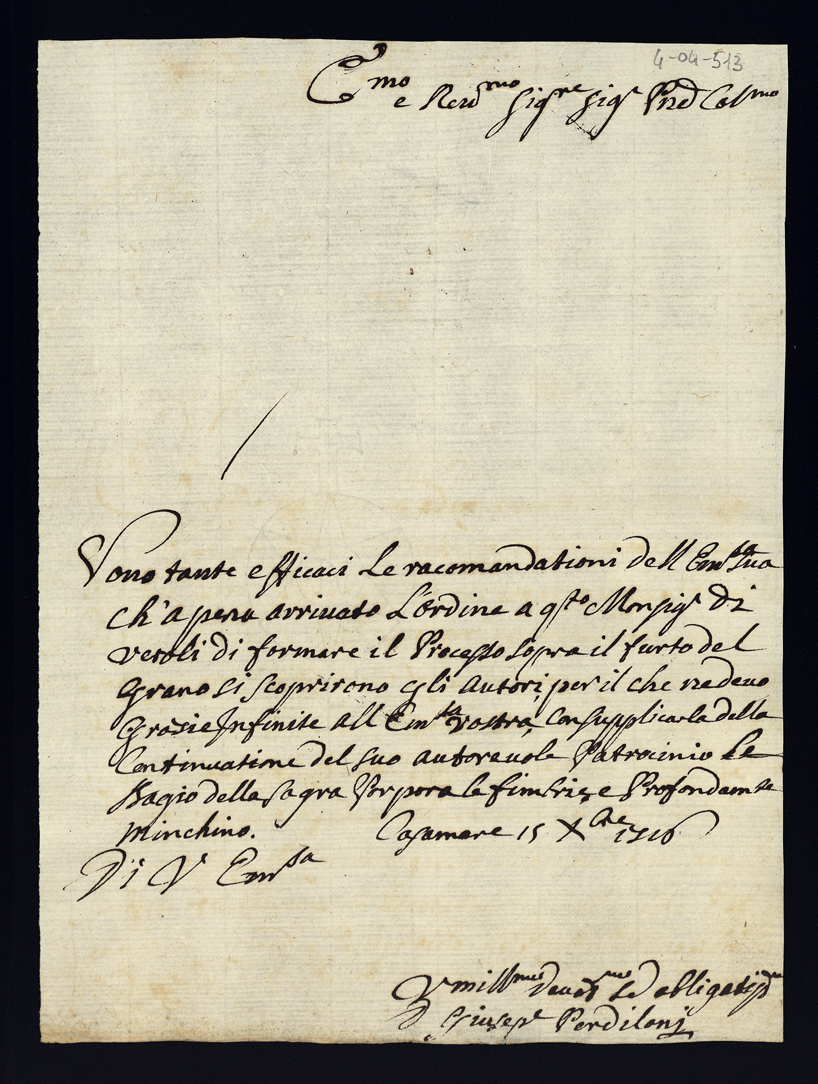 4-04-513
Emo
e Revmo Sigre Sigr Pred Colmo
Sono tante efficaci le racomandationi dell Emza sua
ch'a pena arrivato l'Ordine a qsto Monsigr di
Veroli di formare il Processo sopra il furto del
grano si scoprirono gli autori, per il che ne devo
grasie Infinite all Emza vostra, con supplicarla della
Continuatione del suo autorevole Patrocinio le
Bagio della sagra Porpora le fimbrie, e Profondamte
minchino. Casamare 15 Xbre 1716
Di V Emza
Vmillmo Devotmo ed obligatissmo
Giusepe Perdiloni